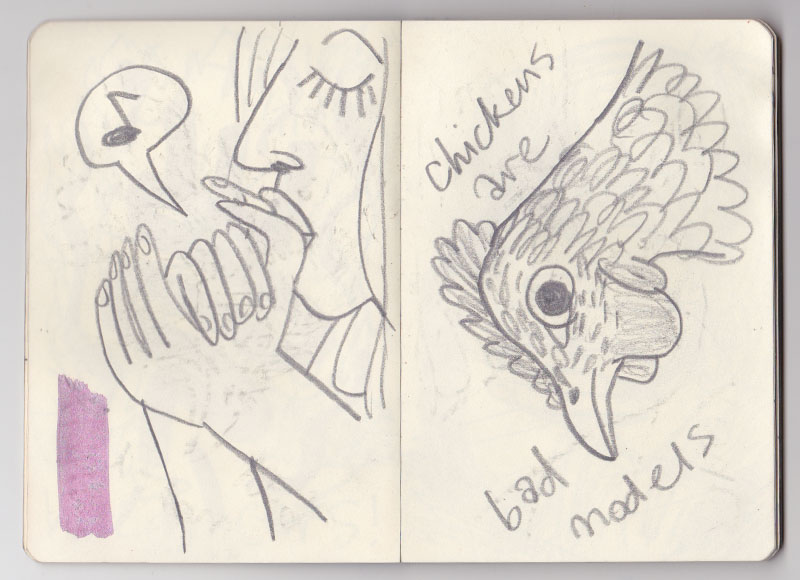 chickens
are
bad
models